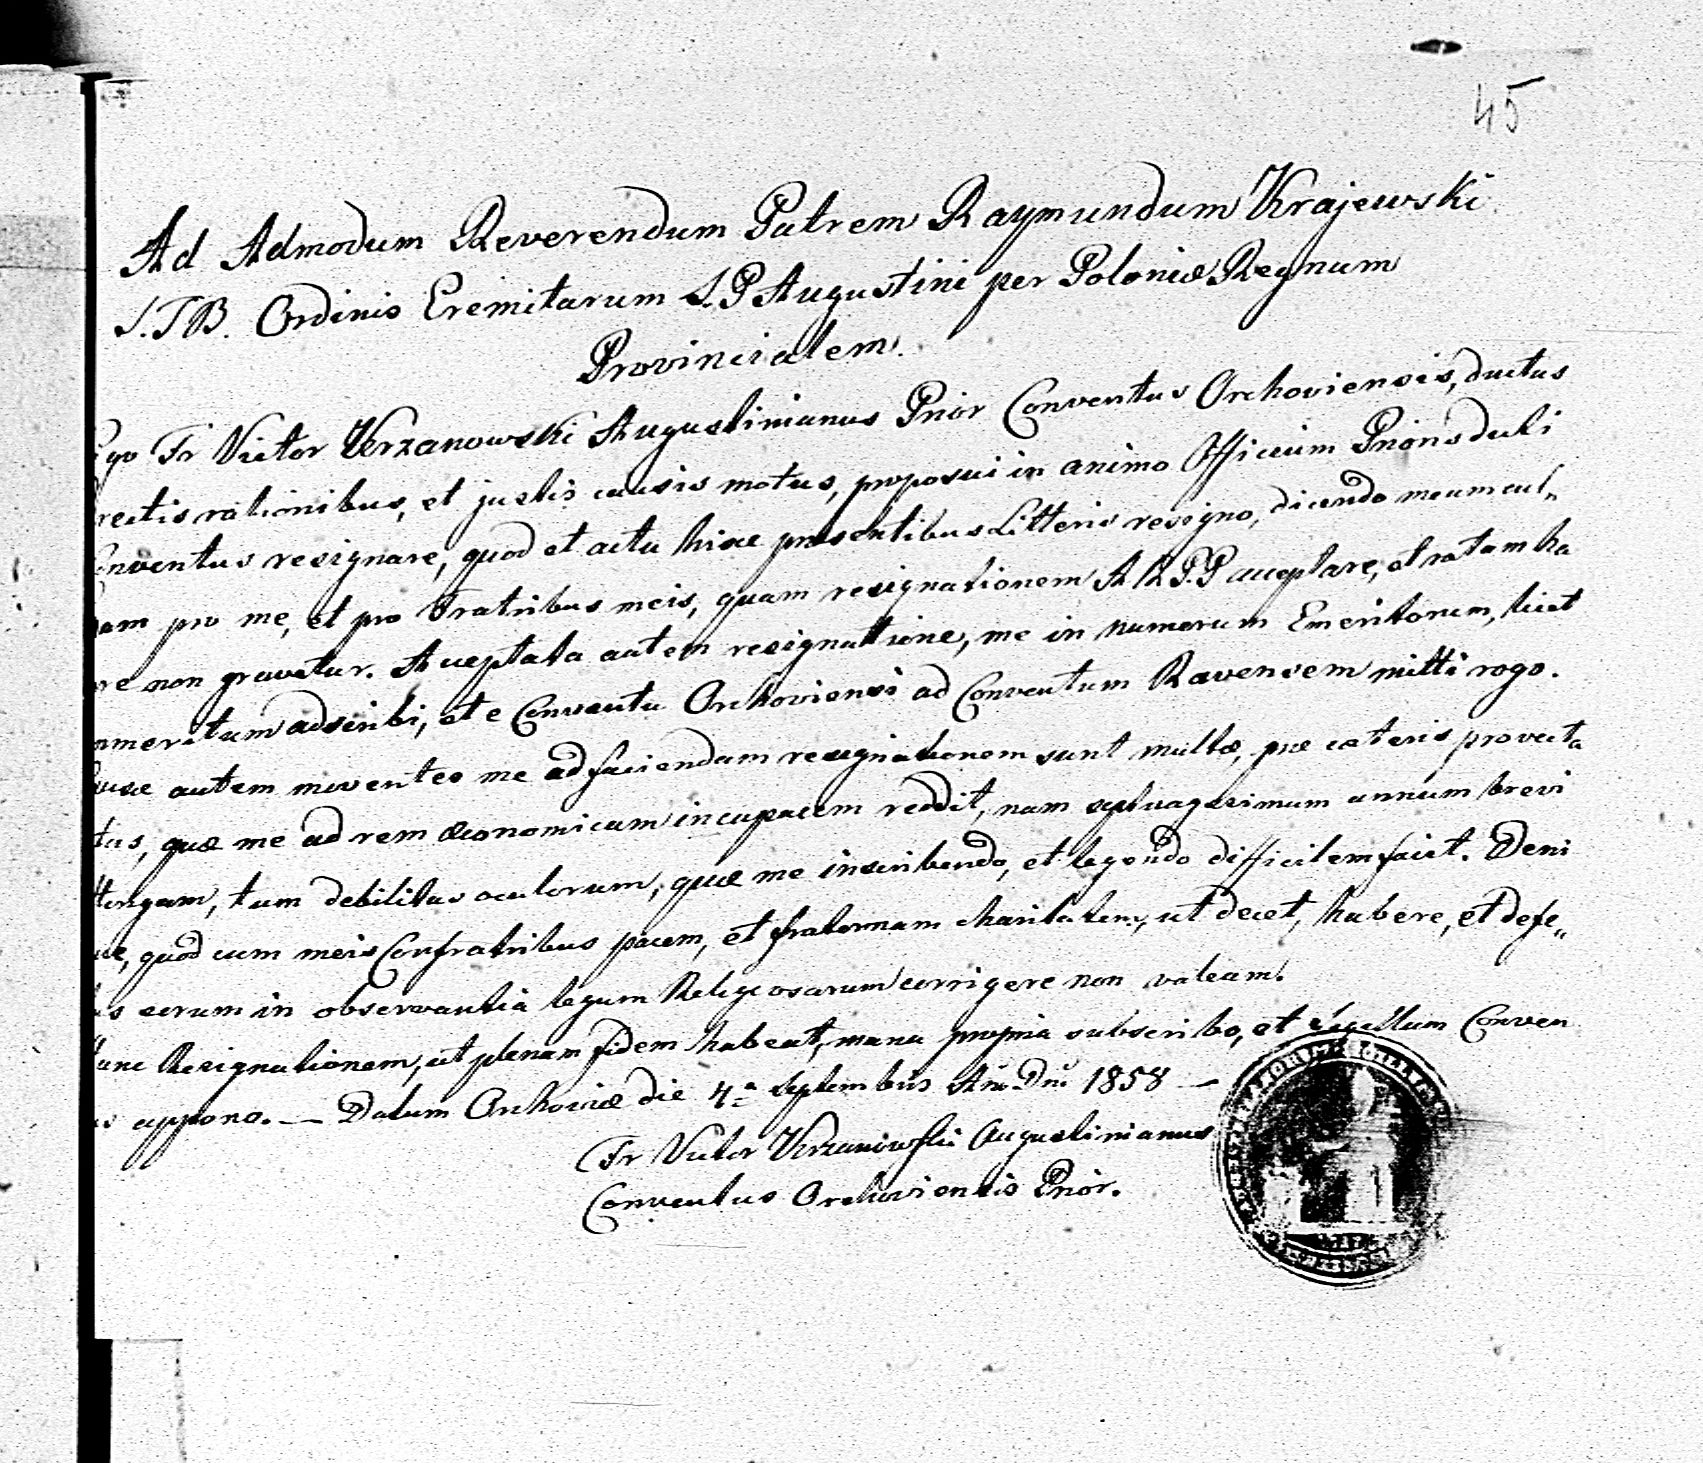 45
Ad Admodum Reverendum Patrem Raymundum Krajewski
S.T.B. Ordinis Eremitarum S.P. Augustini per Poloniæ Regnum
Provincialem.
Ego Fr Victor Krzanowski Augustinianus Prior Conventus Orchoviensis, ductus
rectis rationibus, et justis causis motus, proposui in animo Officium Prioris dicti
Conventus resignare, quod et actu hisce præsentibus Litteris resigno, dicendo meam cul„
pam pro me, et pro Fratribus meis, quam resignationem A R P. P acceptare, et ratam ha
re non gravetur. Acceptata autem resignatione, me in numerum Emeritorum, licet
nmeritum adscribi, et e Conventu Orchoviensi ad Conventum Ravensem mitti rogo.
ausæ autem moventes me ad faciendam resignationem sunt multæ, præ cæteris provecta
tas, quæ me ad rem œconomicam incapacem reddit, nam septuagesimum annum brevi
ttingam, tum debilitas oculorum, quæ me in scribendo, et legendo difficilem facit. Deni
ue, quod cum meis Confratribus pacem, et fraternam charitatem, ut decet, habere, et defe„
us eorum in observantia legum Religiosarum corrigere non valeam.
anc Resignationem, ut plenam fidem habeat, manu propria subscribo, et sigillum Conven
us appono. — Datum Orchoviæ die 4ª Septembris Ani Dni 1858 —
Fr Victor Krzanowski Augustinianus
Conventus Orchoviensis Prior.